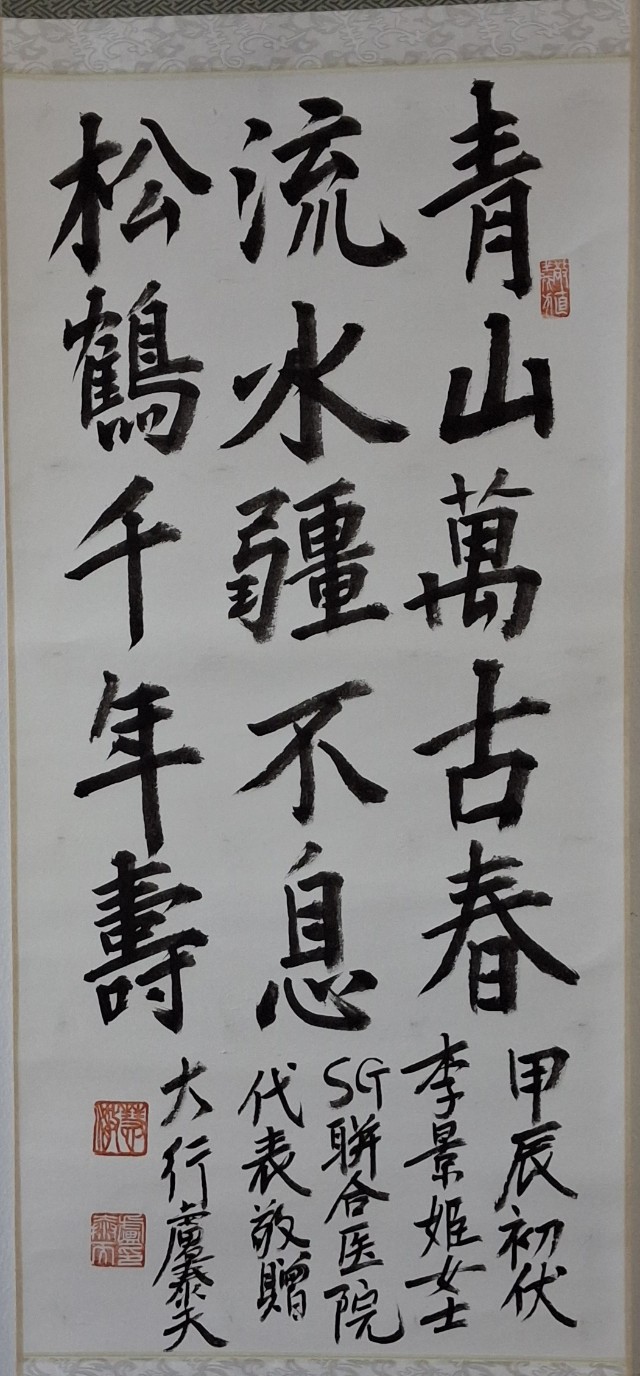 青山萬古春
流水疆不息
松鶴千年壽
甲辰初伏
李景姬女士
SG聯合医院
代表敬贈
大行盧泰天